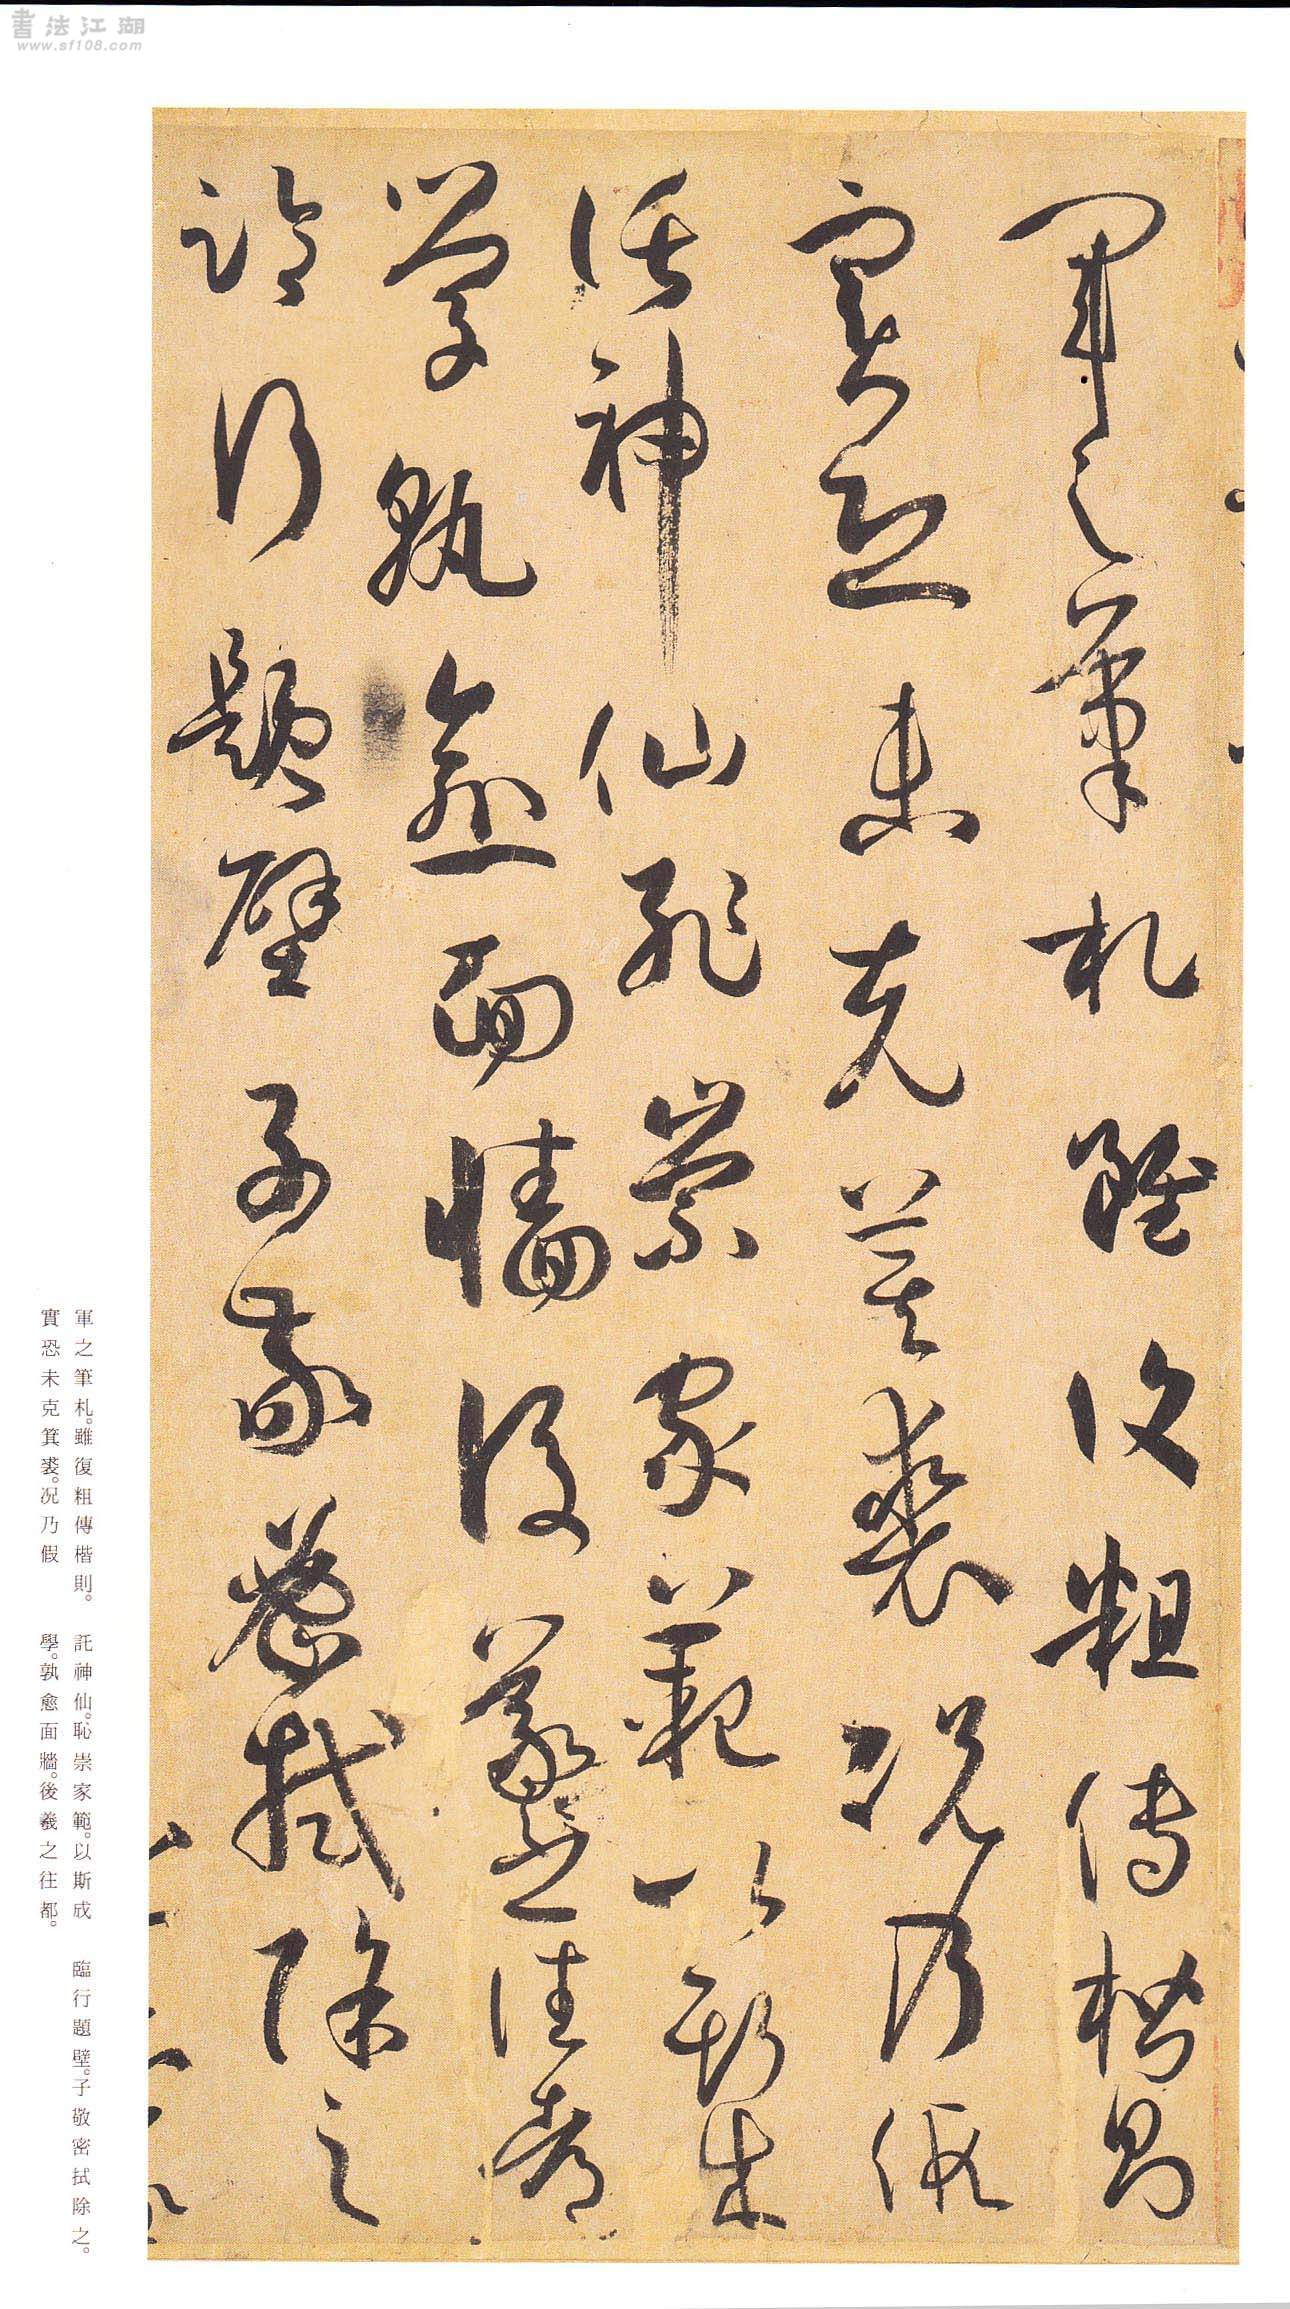 書法江湖
www.sf108.com
軍之筆札雖復粗傳楷則
實恐未克箕裘況乃假
託神仙恥崇家範以斯成
學孰愈面牆後羲之往都
臨行題壁子敬密拭除之
軍之筆札。雖復粗傳楷則。
實恐未克箕裘。況乃假
託神仙。恥崇家範。以斯成
學。孰愈面牆。後羲之往都。
臨行題壁。子敬密拭除之。